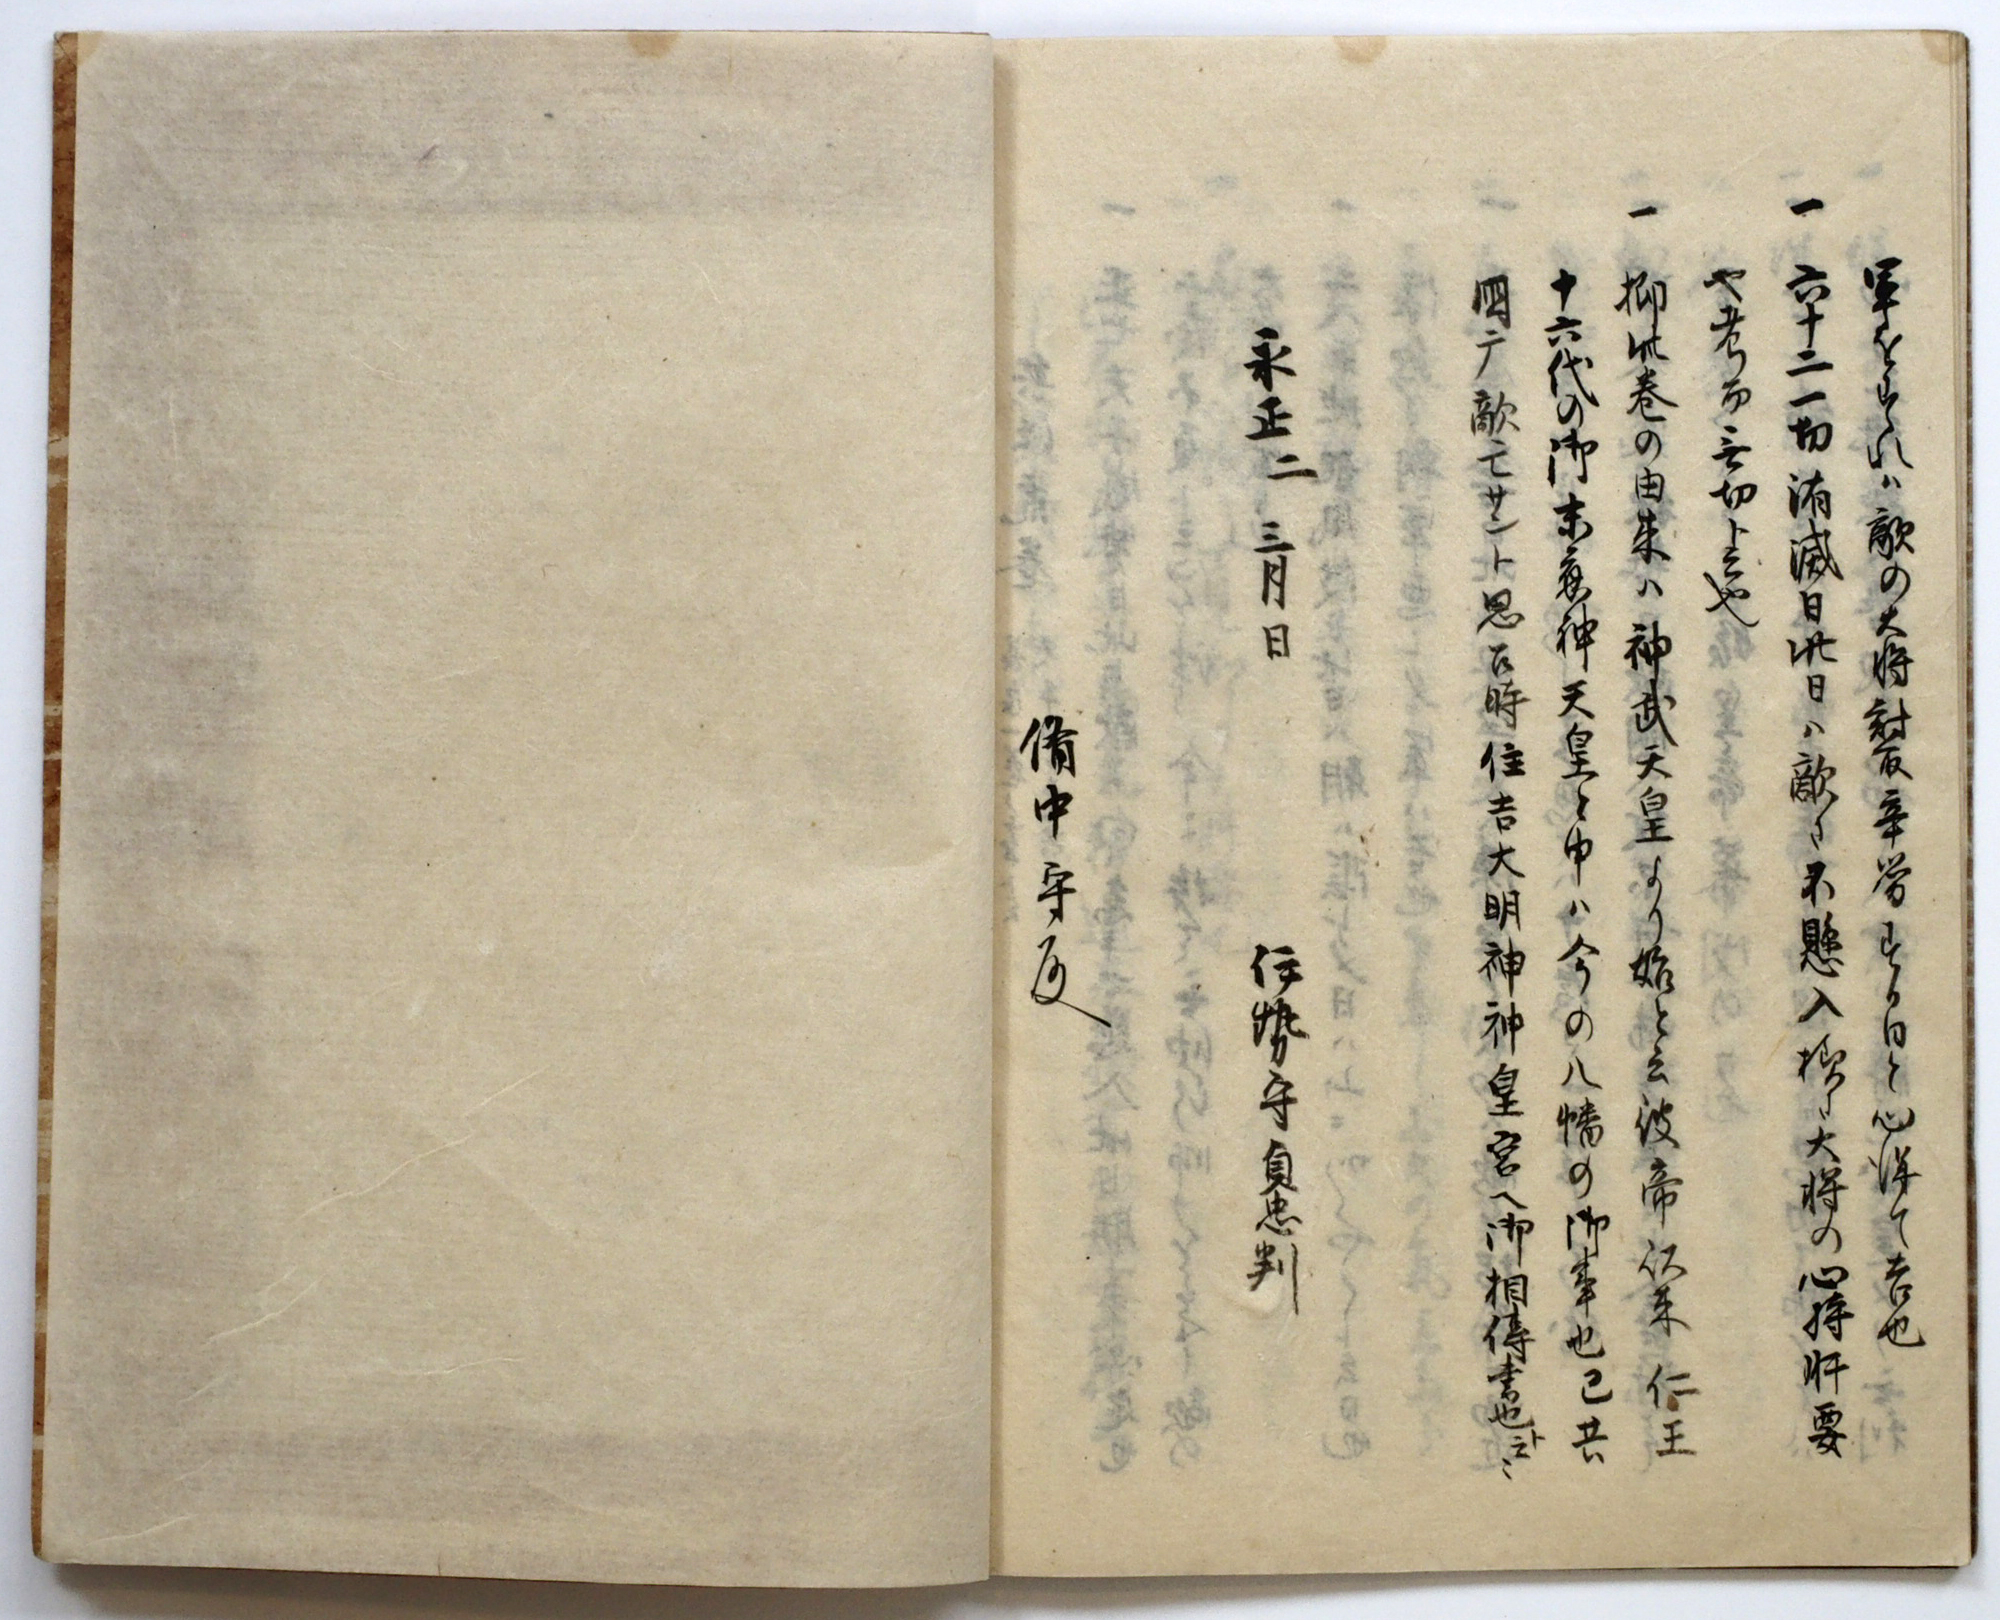 軍をすれハ敵の大将討取辛労する日と心得て吉也
一 六十二一切消滅日此日ハ敵ニ不懸入様ニ大将の心持肝要
や考而云切ト云や
一 抑此巻の由来ハ神武天皇より始と云彼帝以来仁王
十六代の御末応神天皇と申ハ今の八幡の御事也已共
四テ敵亡サント思召時住吉大明神神皇宮へ御相傳書也ト云ニ
永正二 三月日
伊勢守貞忠判
備中守殿